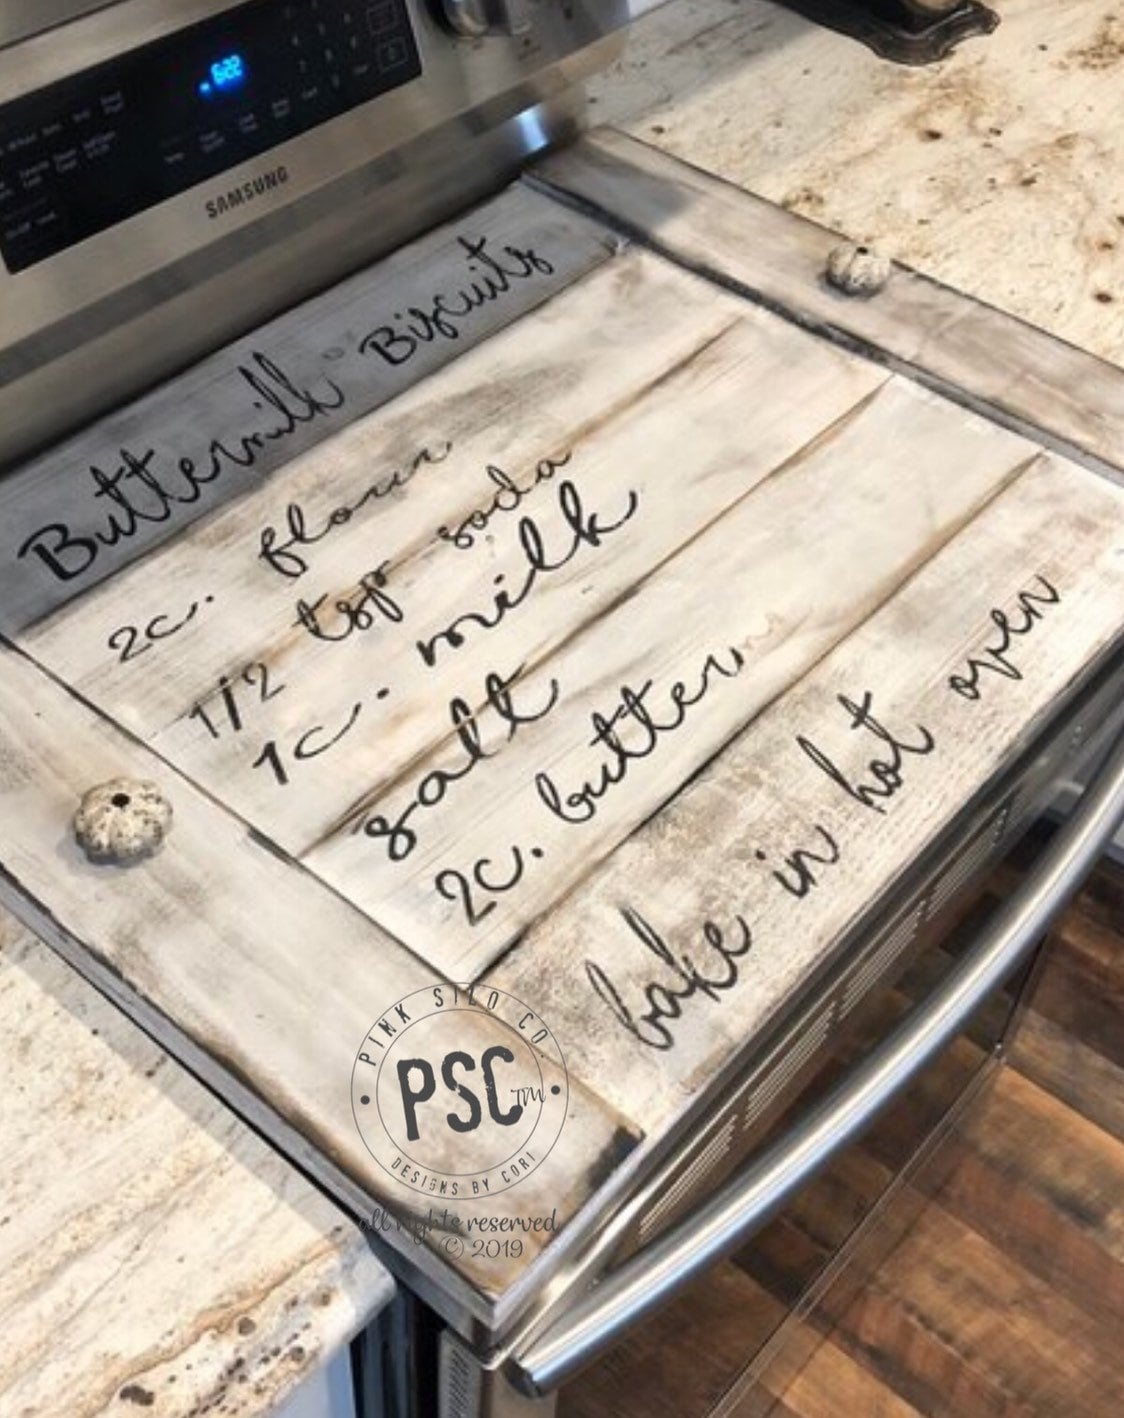 6:22
SAMSUNG
Buttermilk Biscuits
2c. flour
1/2 tsp soda
1c. milk
salt
2c. butter
bake in hot open
PINK SILO CO.
PSC TM
DESIGNS BY CORI
all rights reserved
© 2019